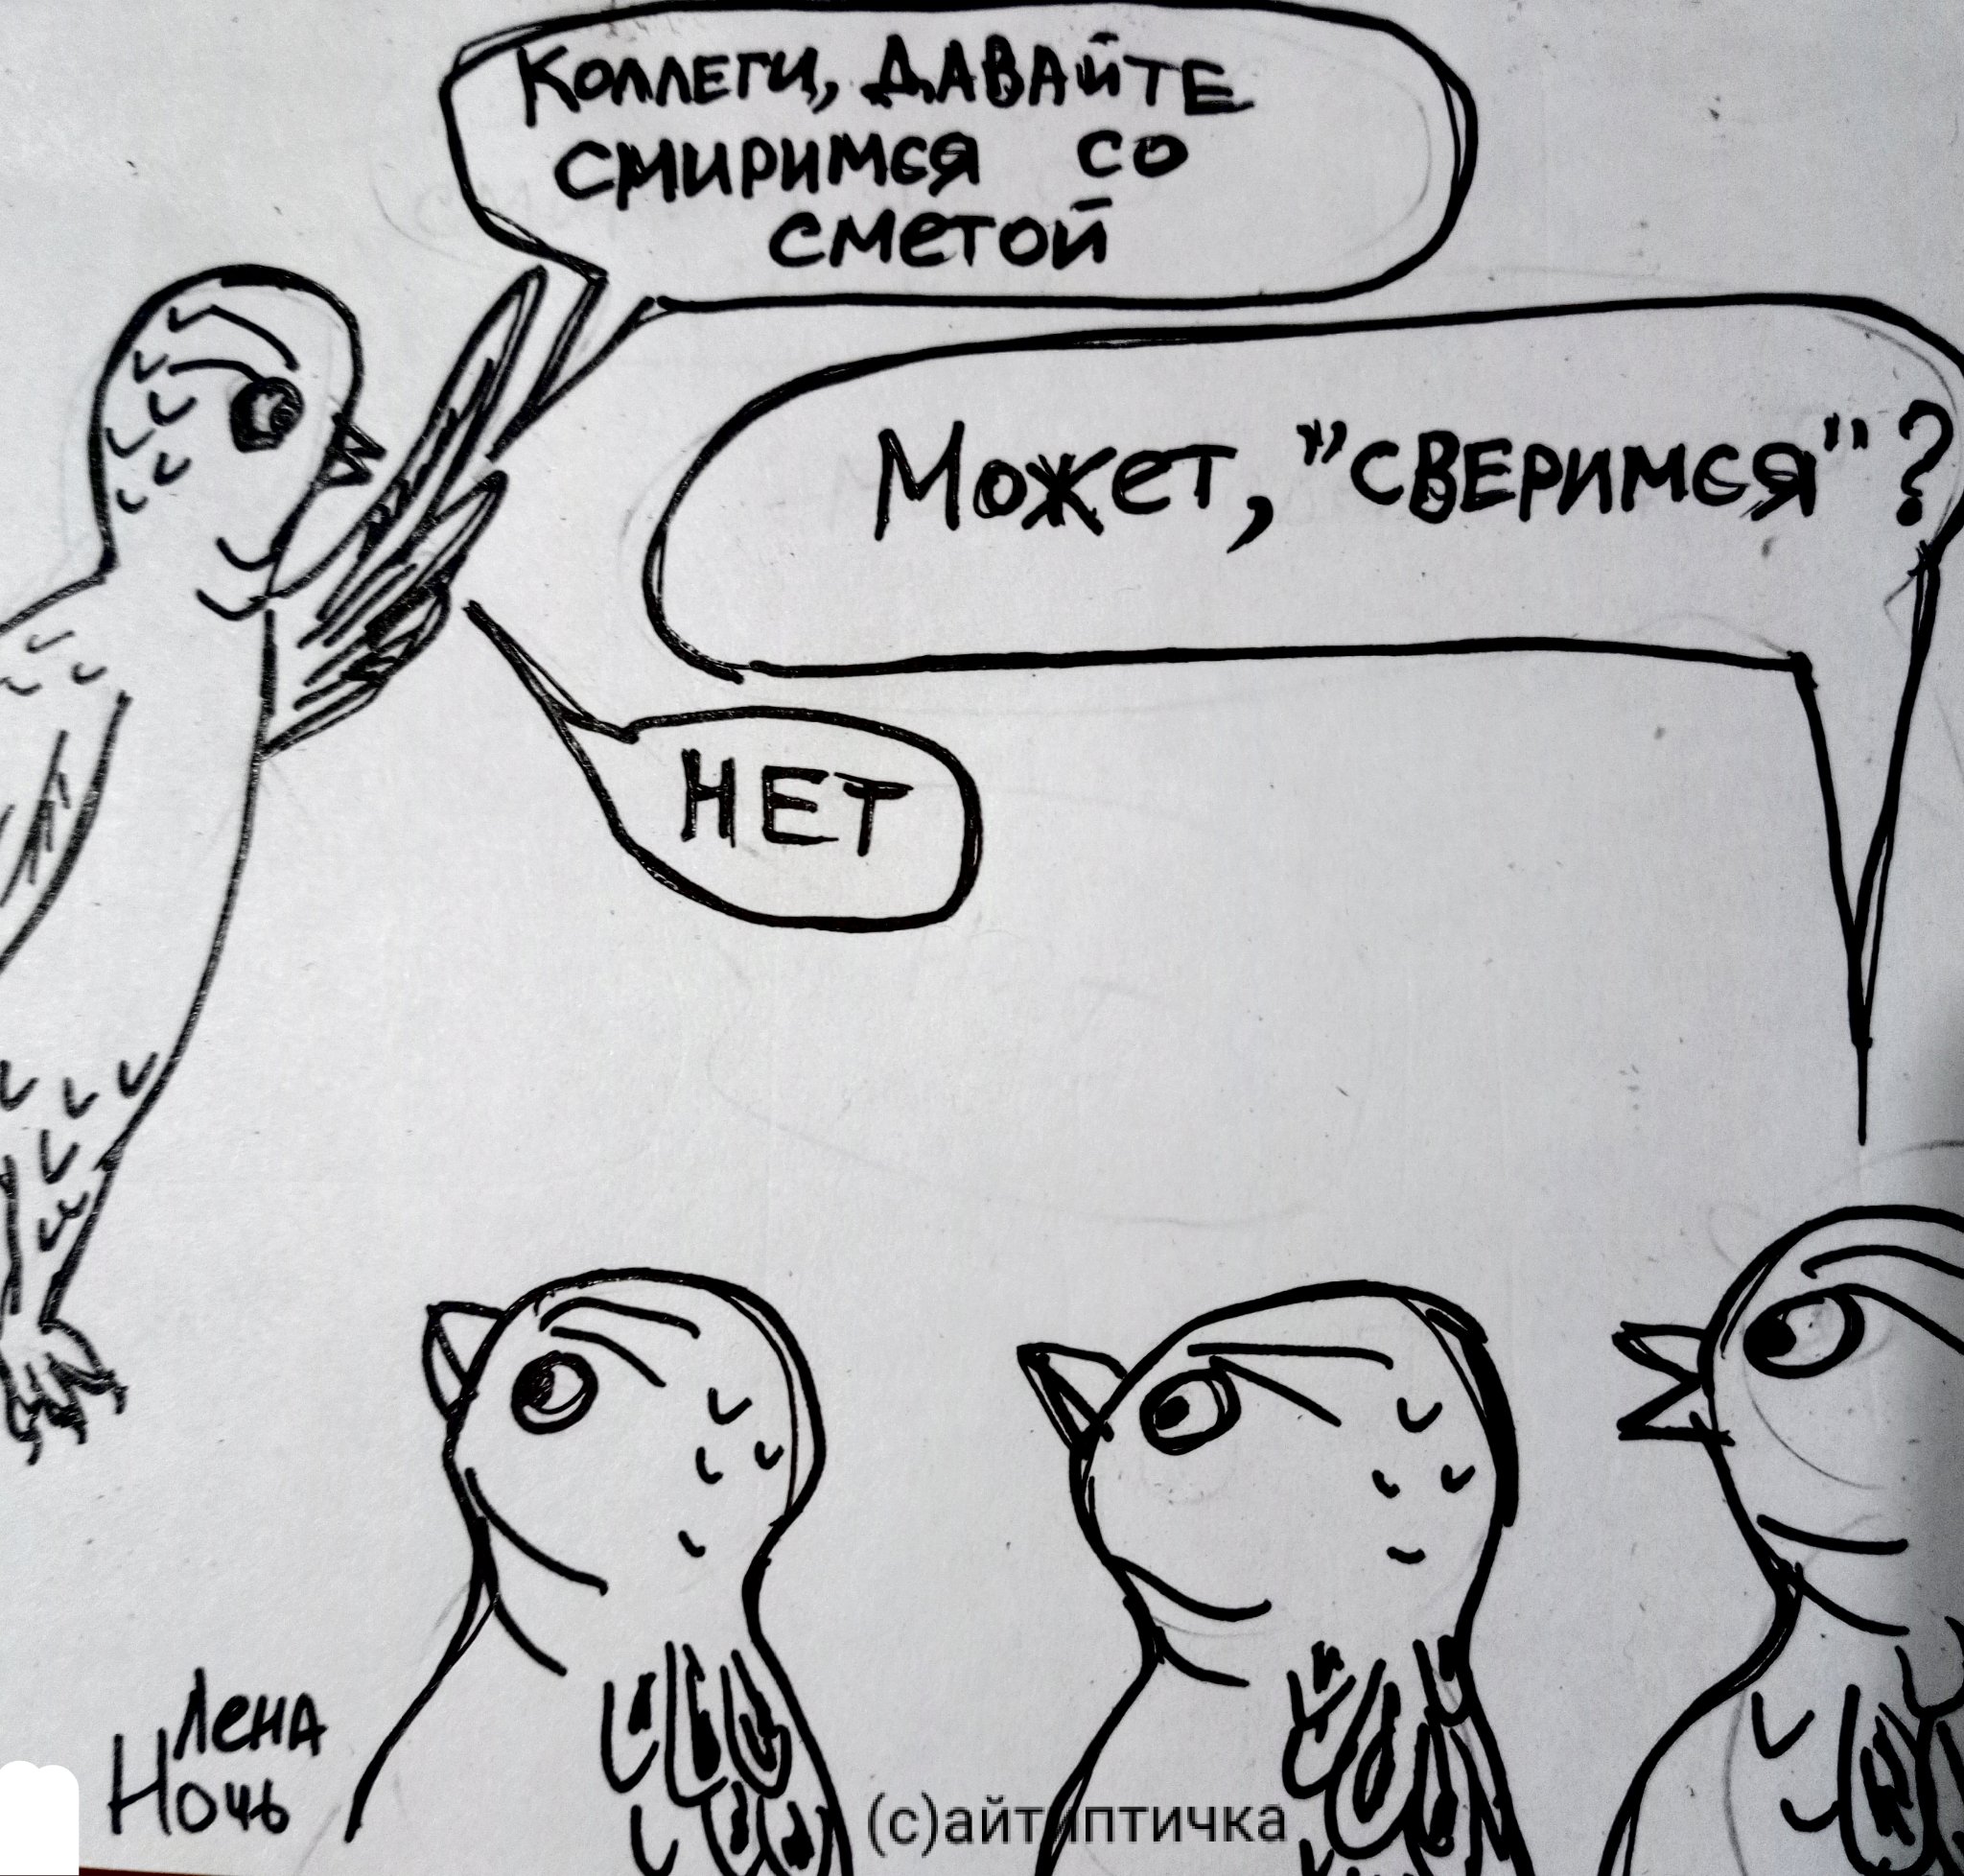 Коллеги, ДАВАЙТЕ
смиримся со
сметой
Может, "сверимся"?
НЕТ
Лена
Ночь
(с)айтиптичка